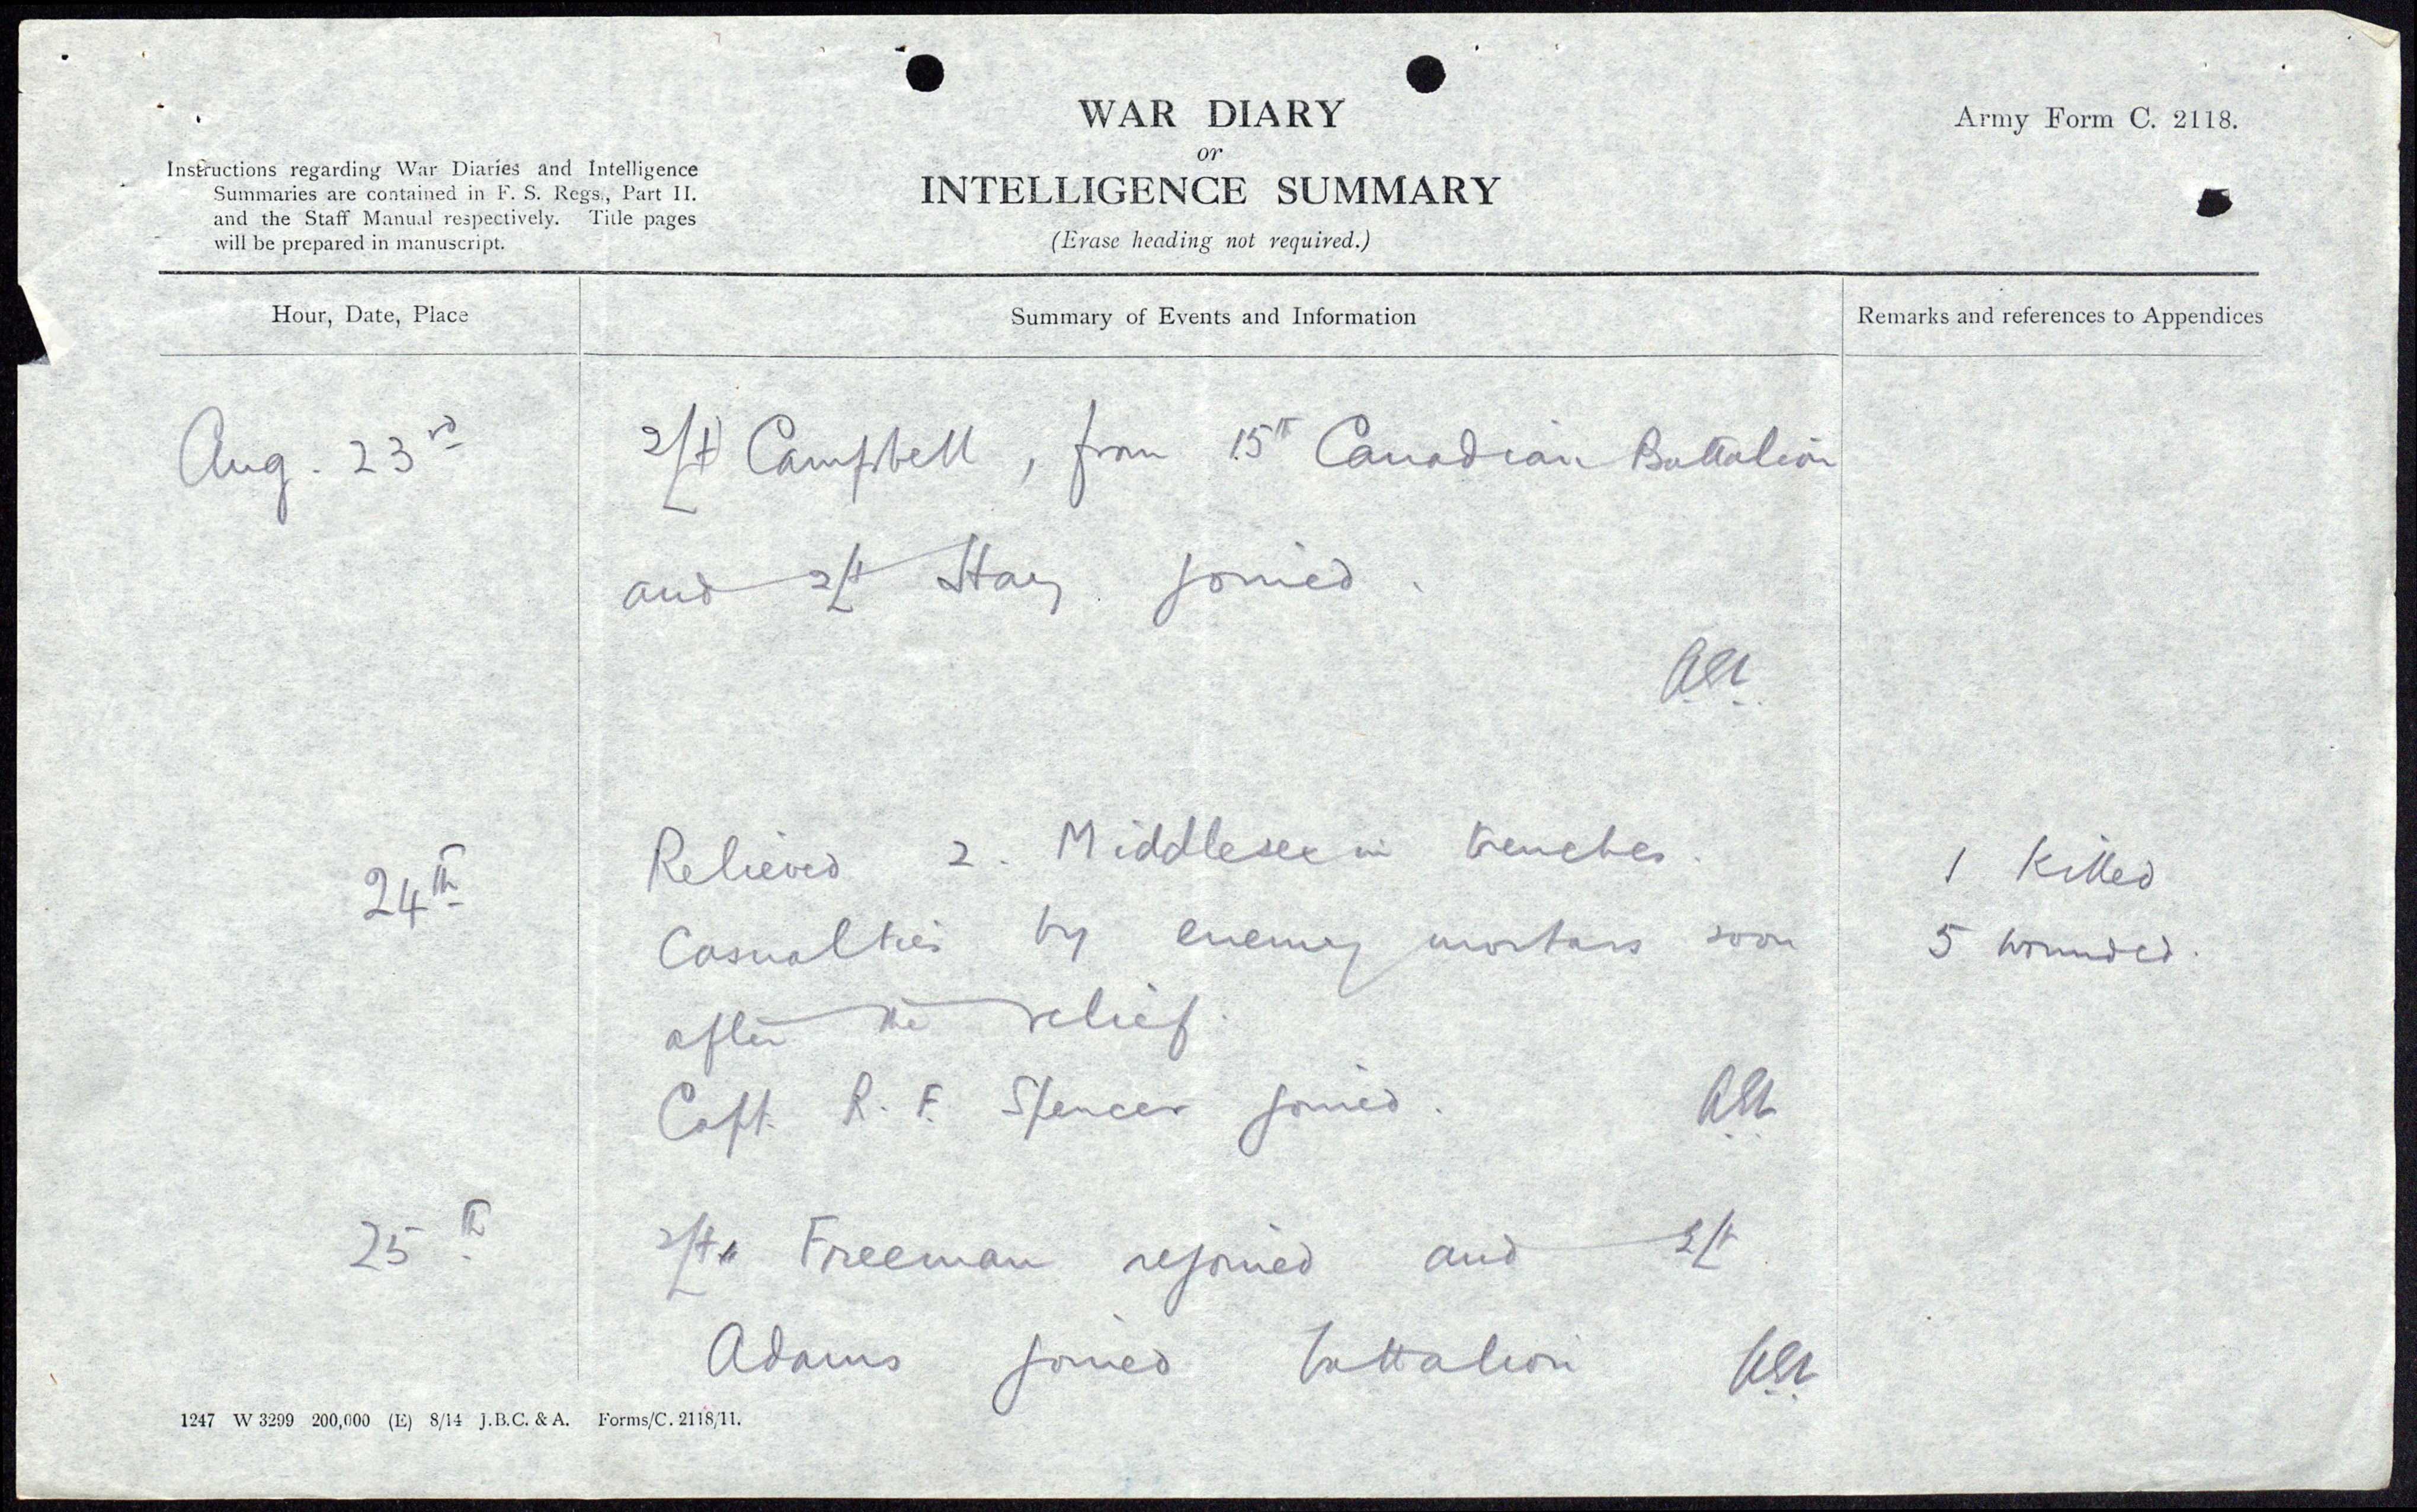 WAR DIARY
or
INTELLIGENCE SUMMARY
(Erase heading not required.)
Army Form C. 2118.
Instructions regarding War Diaries and Intelligence
Summaries are contained in F. S. Regs., Part II.
and the Staff Manual respectively. Title pages
will be prepared in manuscript.
Hour, Date, Place
Summary of Events and Information
Remarks and references to Appendices
Aug. 23rd
2/Lt Campbell, from 15th Canadian Battalion
and 2/Lt joined.
24th
Relieved 2. Middlesex in trenches.
1 Killed
Casualties by enemy mortars soon
5 wounded.
after the relief.
Capt. R. F. Spencer joined.
25th
2/Lt Freeman rejoined and 2/Lt
Adams joined battalion
1247 W 3299 200,000 (E) 8/14 J.B.C. & A. Forms/C. 2118/11.